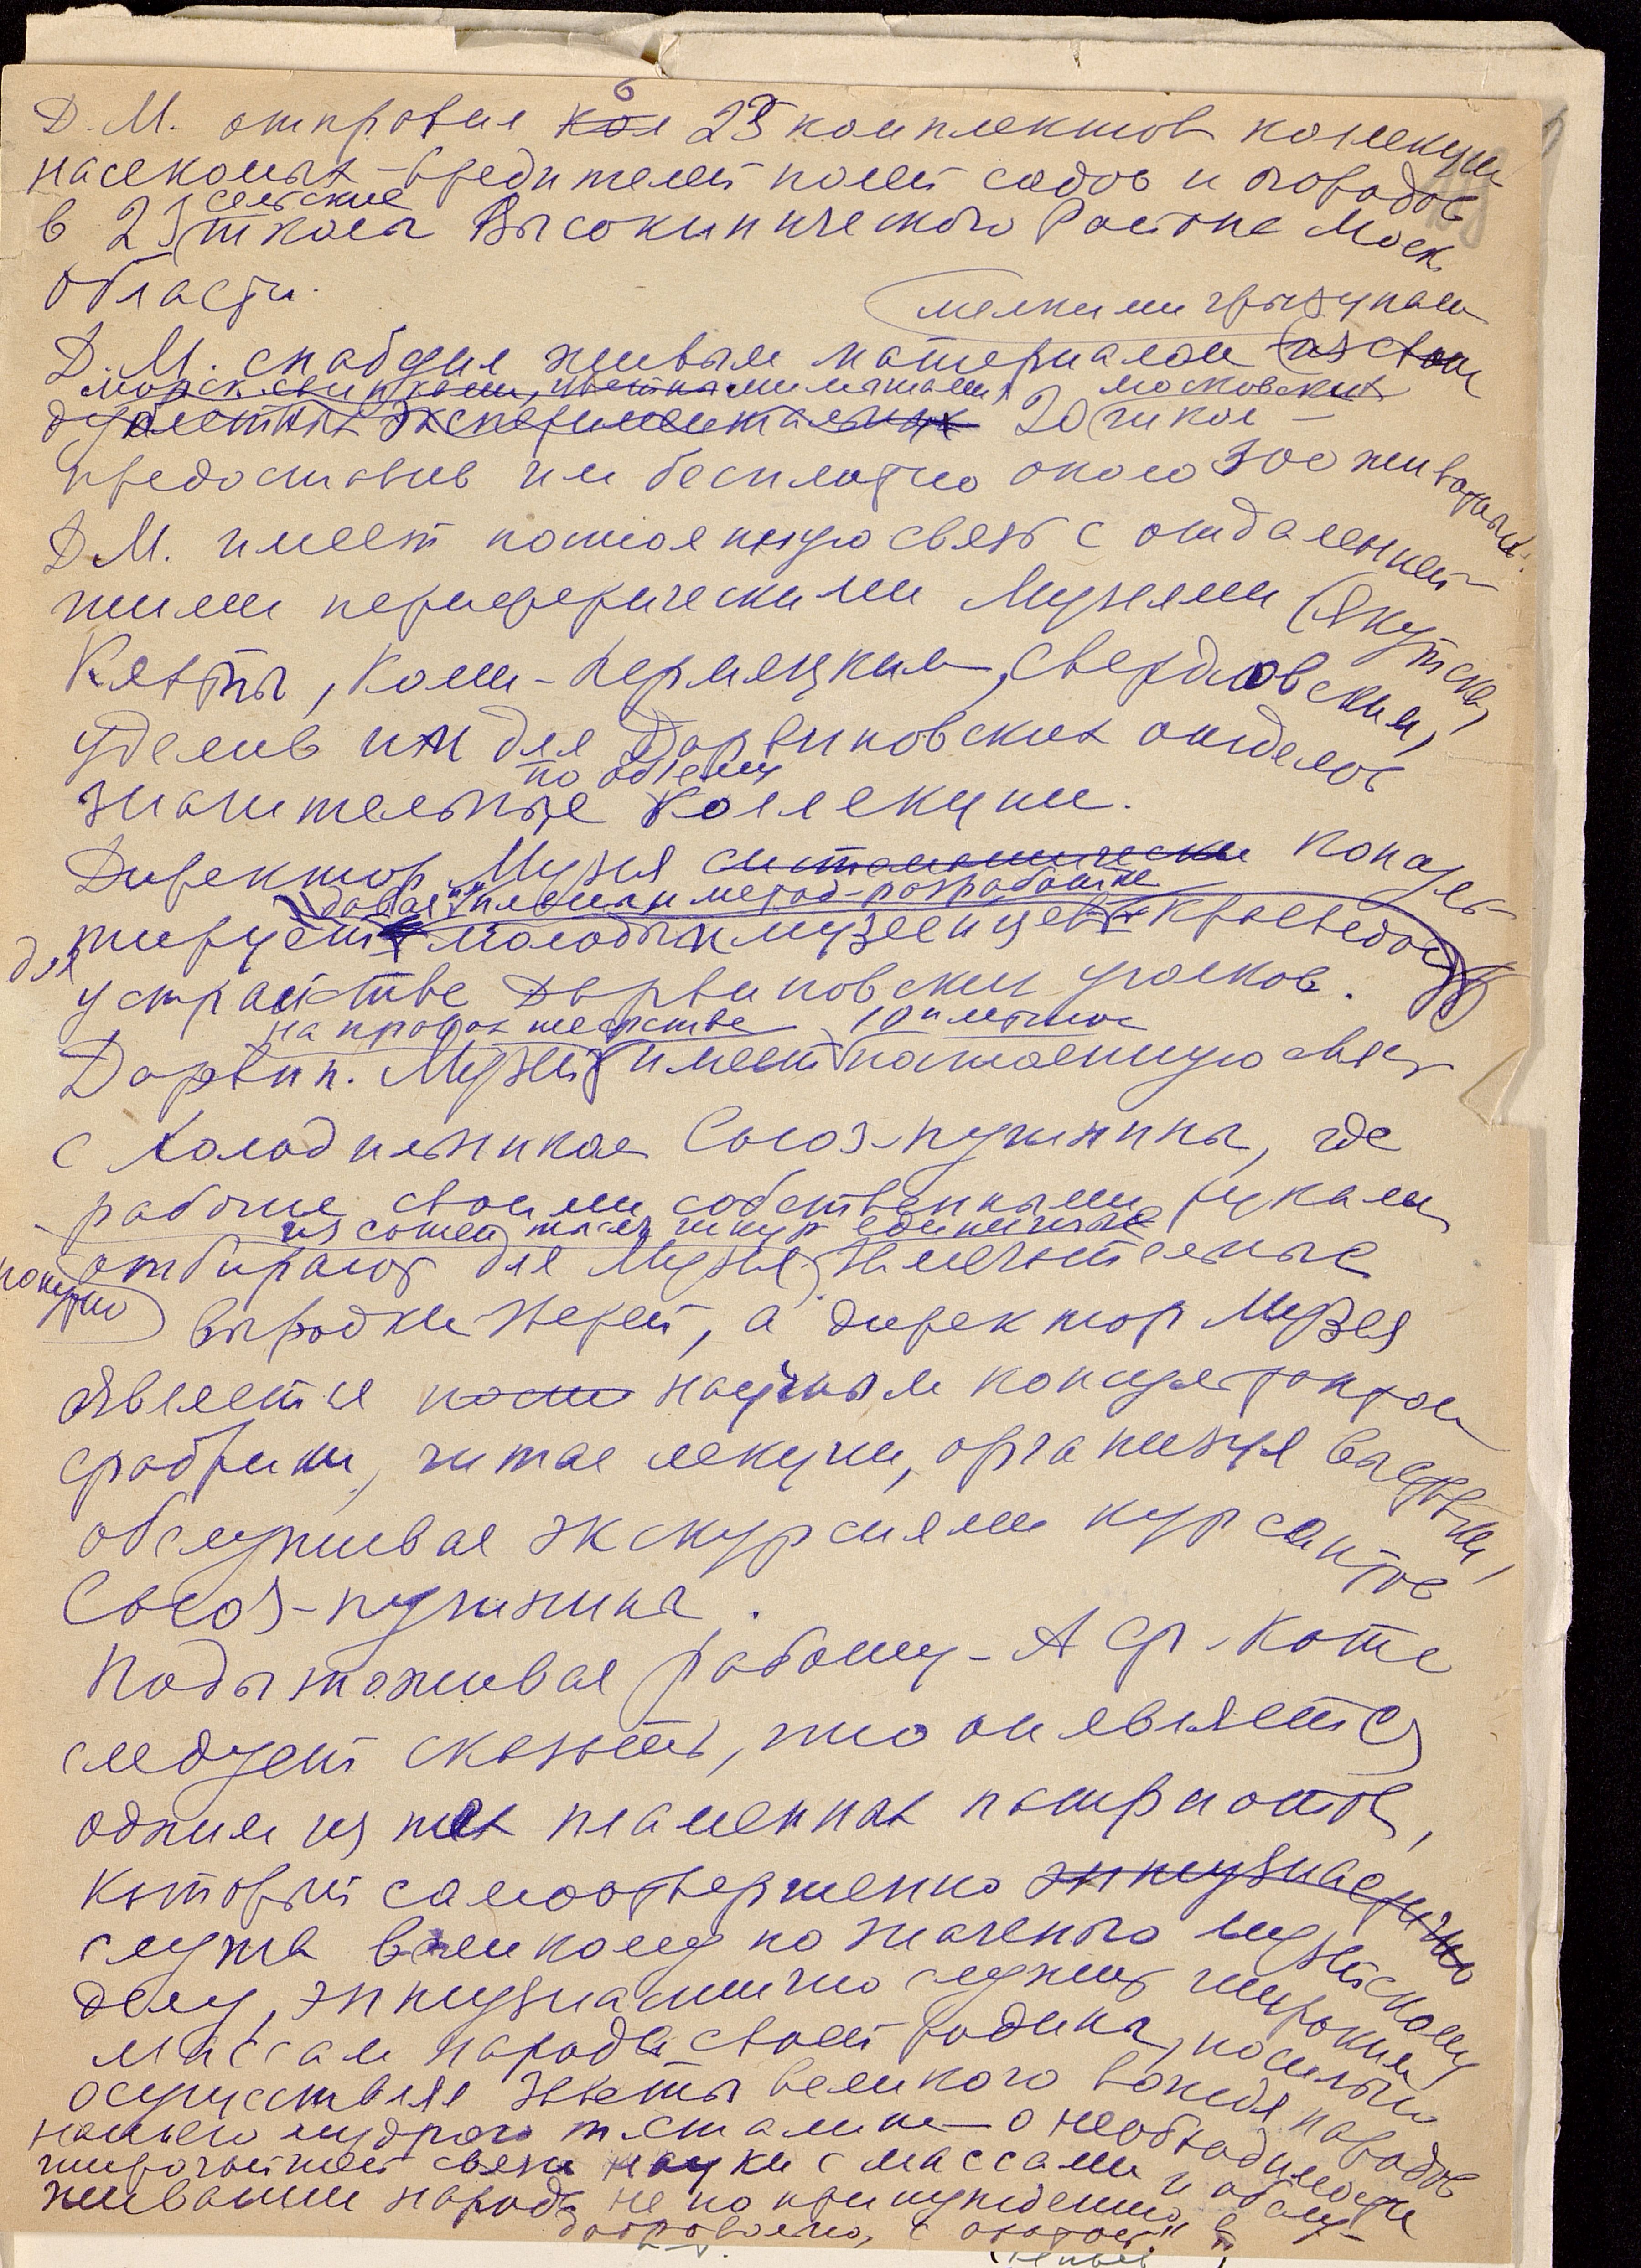 Д. М. отправил кол 23 комплектов коллекции
насекомых-вредителей полей садов и огородов
сельские
в 23 школы Высокинического Района Моск.
области.
мелкими грызунами
Д. М. снабдил живым материалом
морск. свинками, цветными мышами московских
экспериментальных 20 школ —
предоставив им бесплатно около 300 животных.
Д. М. имеет постоянную связь с отдаленней-
шими периферическими Музеями (Якутска,
Кяхты, Коми-Пермяцким, Свердловским,
уделив им для Дарвиновских отделов
по объему
значительные коллекции.
Директор Музея систематически консуль-
давая планы и метод-разработки
тирует молодых музейцев и краеведов
для
устройстве Дарвиновских уголков.
на правах шефства 10 летнюю
Дарвин. Музей имеет постоянную связь
с Холодильником Союз-пушнины, где
рабочие своими собственными руками
из сотен тысяч шкур единичные
отбирают для Музея замечательные
выродки зверей, а директор Музея
является научным консультантом
фабрики, читая лекции, организуя выставки,
обслуживая экскурсиями курсантов
Союз-пушнины.
Подытоживая работу А. Ф. Котс
следует сказать, что он является
одним из тех пламенных патриотов,
который самоотверженно энтузиастично
служа великому по значению музейскому
делу, энтузиастично служит широким
массам народа своей родины, посильно
осуществляя заветы великого вождя народов
нашего мудрого т. Сталина — о необходимости
широчайшей связи науки с массами и обслу-
живании народа не по принуждению, а
добровольно, с охотой."